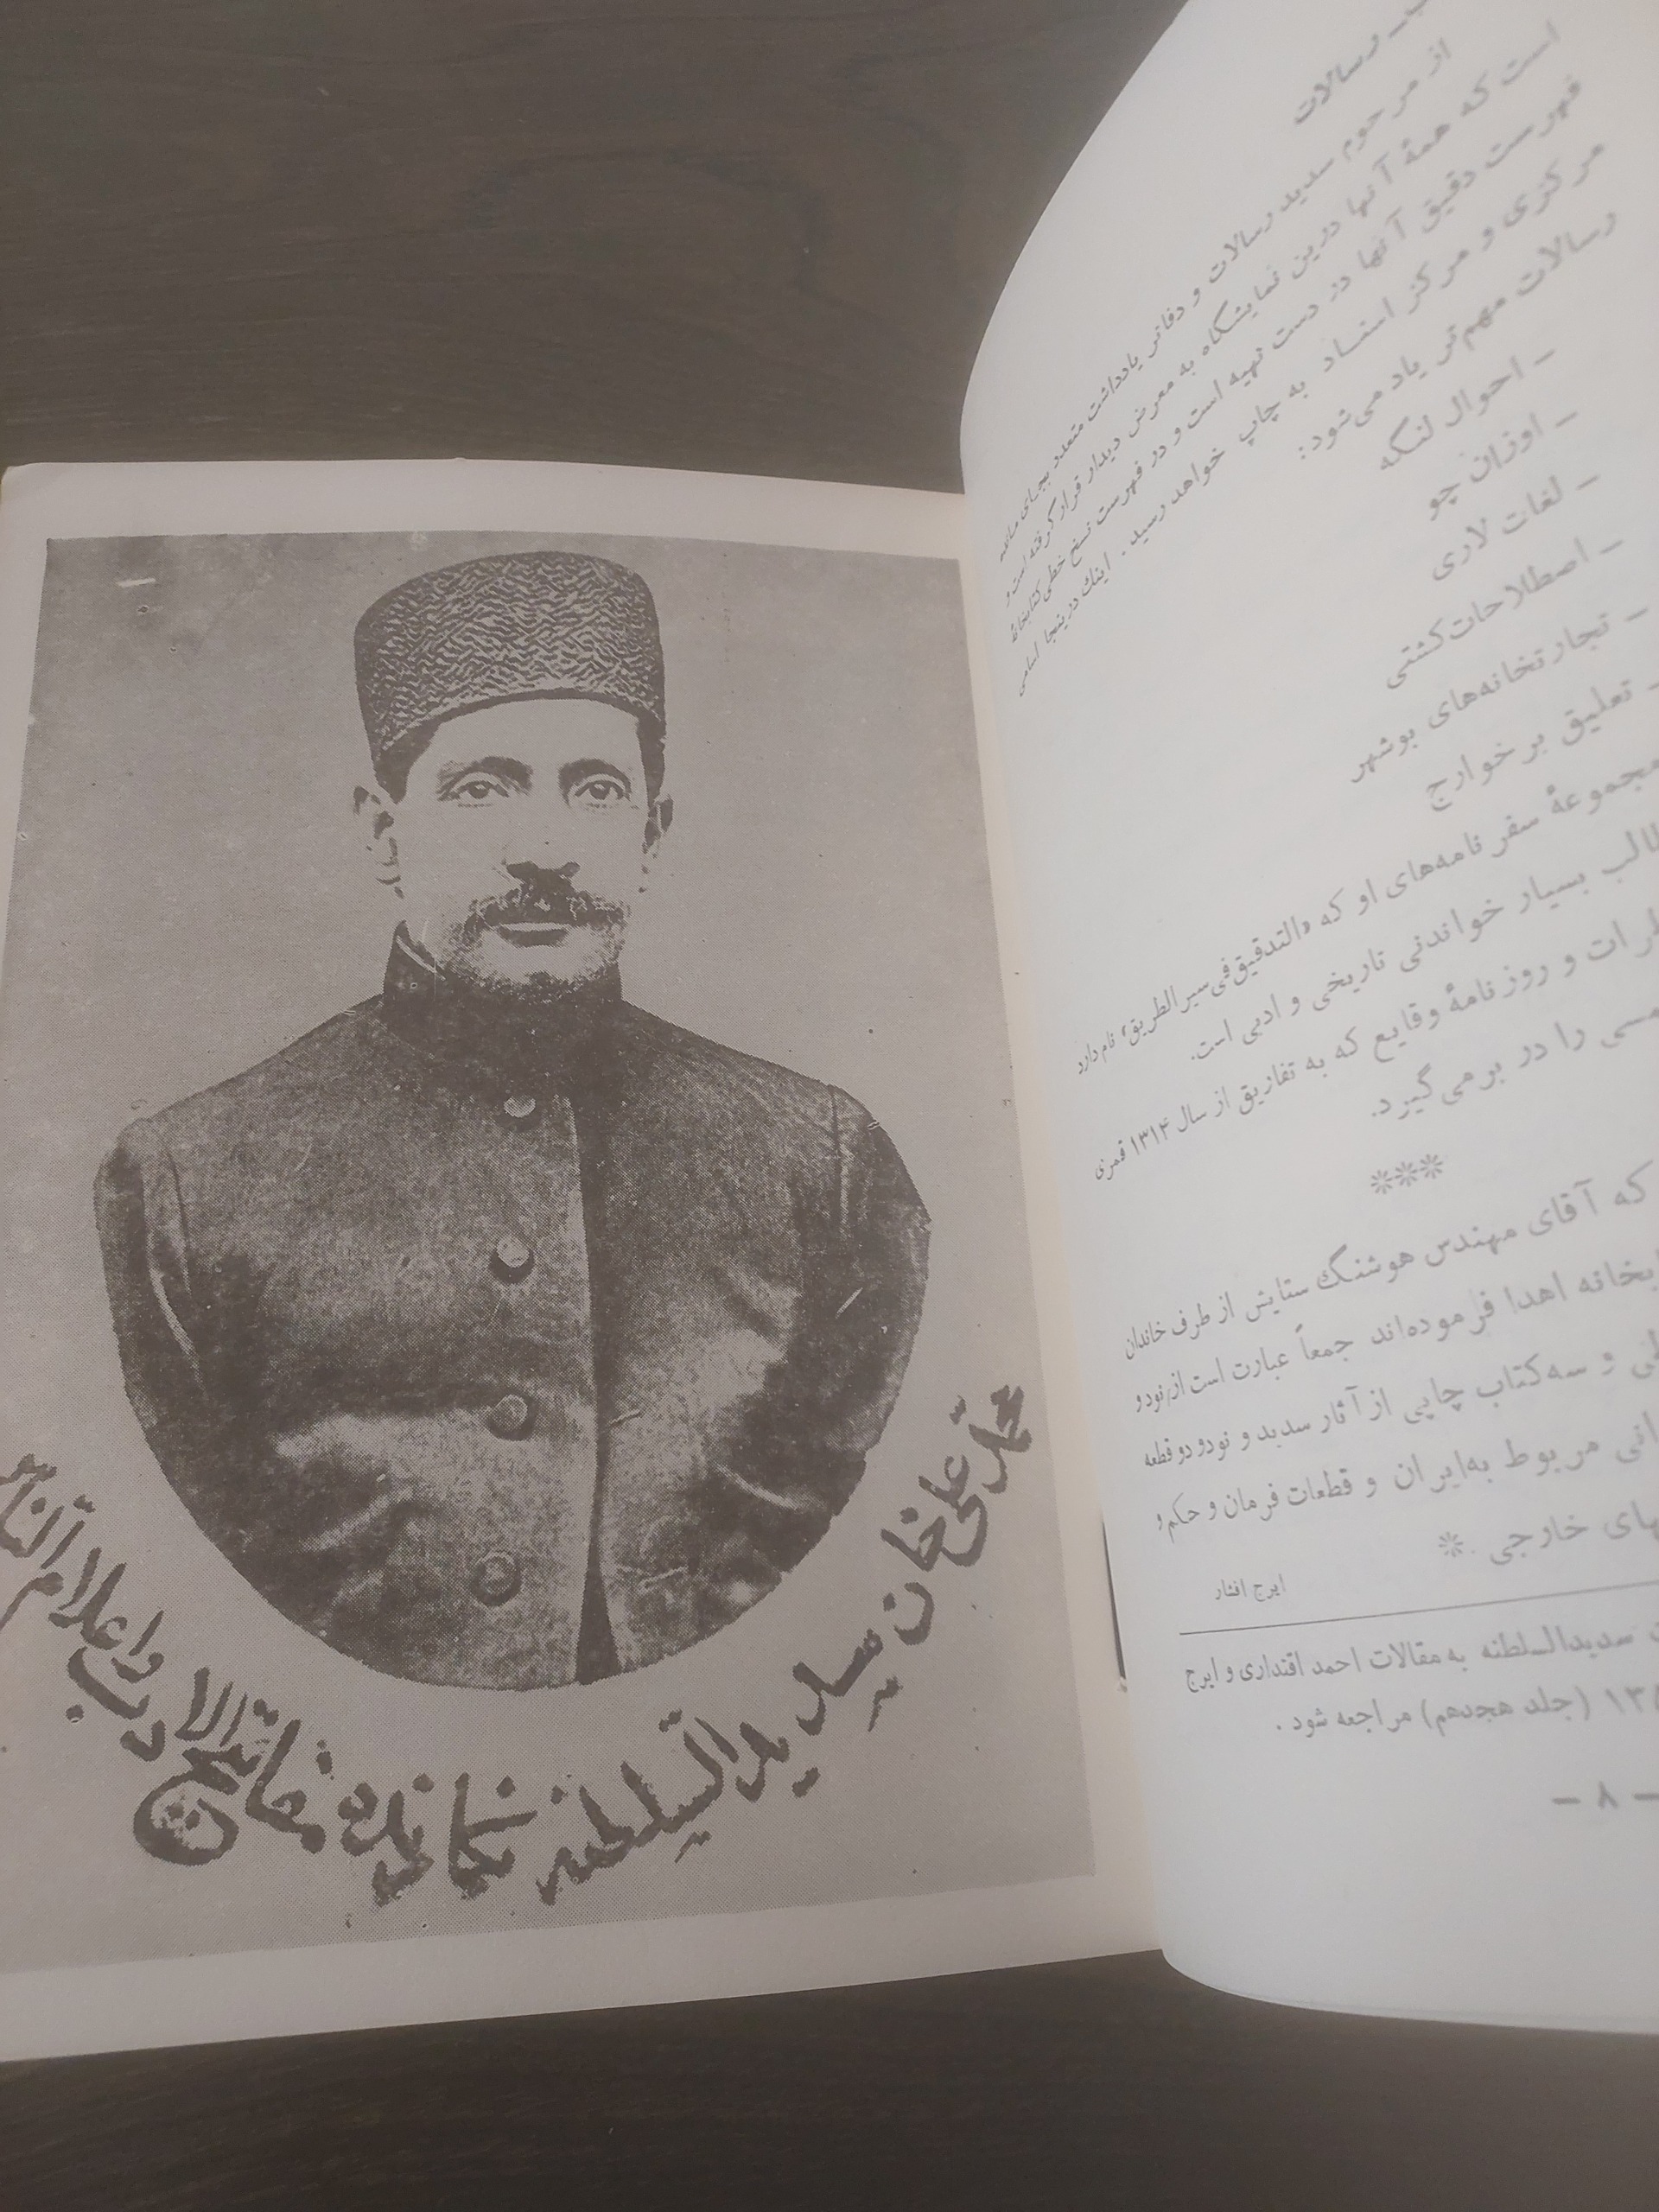 رسالات
از مرحوم سدید رسالات و دفاتر یادداشت متعدد بجای مانده
است که همهٔ آنها درین نمایشگاه به معرض دیدار قرار گرفته است و
فهرست دقیق آنها در دست تهیه است و در فهرست نسخ خطی کتابخانهٔ
مرکزی و مرکز اسناد به چاپ خواهد رسید. اینك درینجا اسامی
رسالات مهم‌تر یاد می‌شود:
ـ احوال لنگه
ـ اوزان چو
ـ لغات لاری
ـ اصطلاحات کشتی
ـ تجارتخانه‌های بوشهر
ـ تعلیق بر خوارج
مجموعهٔ سفر نامه‌های او که «التدقیق فی سیر الطریق» نام دارد
بسیار خواندنی تاریخی و ادبی است.
و روزنامهٔ وقایع که به تفاریق از سال ۱۳۱۴ قمری
را در برمی‌گیرد.
***
که آقای مهندس هوشنگ ستایش از طرف خاندان
اهدا فرموده‌اند جمعاً عبارت است از نود و
و سه کتاب چاپی از آثار سدید و نود و دو قطعه
مربوط به ایران و قطعات فرمان و حکم و
خارجی.*
ایرج افشار
سدیدالسلطنه به مقالات احمد اقتداری و ایرج
(جلد هجدهم) مراجعه شود.
ـ ۸ ـ
محمد علی خان سدید السلطنه نگارنده مفاتیح الادب و اعلام